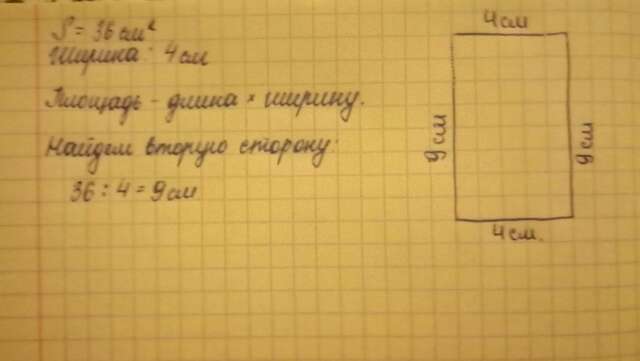 S = 36 см²
Ширина: 4 см
Площадь - длина × ширину.
Найдем вторую сторону:
36 : 4 = 9 см
4 см
9 см
9 см
4 см.